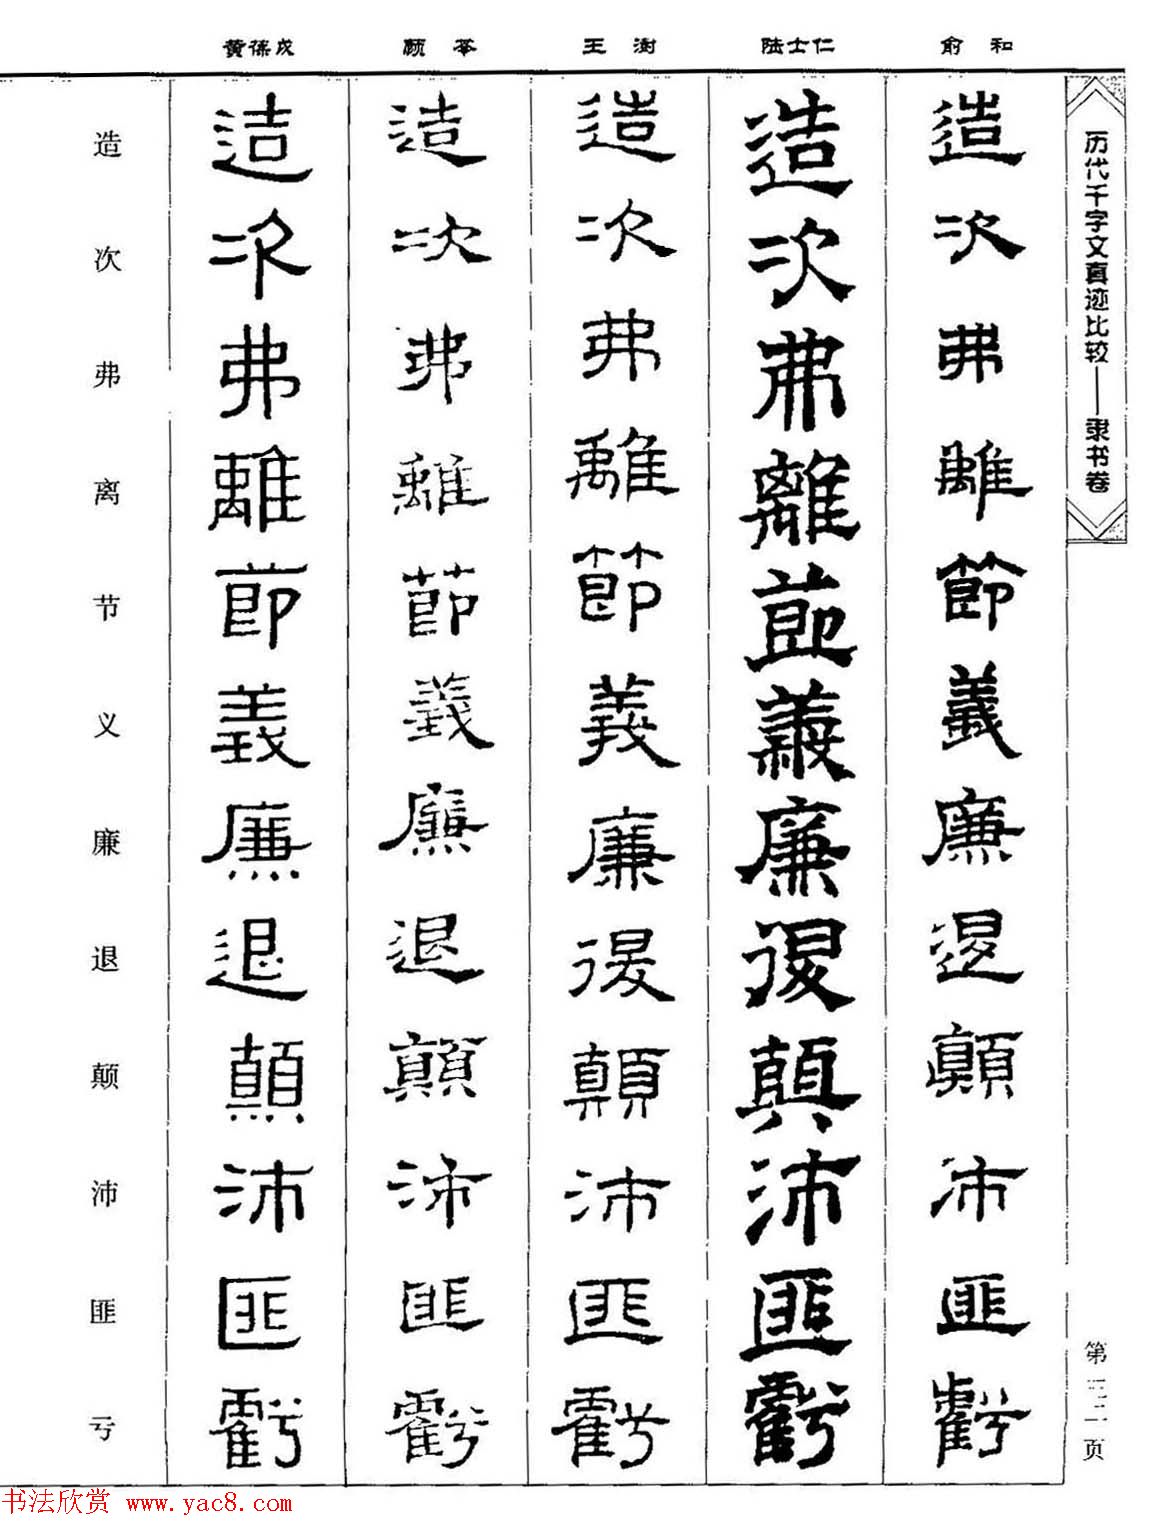 俞和
陆士仁
王澍
顾苓
黄葆戉
历代千字文真迹比较——隶书卷
造次弗離節義廉退顛沛匪虧
造次弗離節義廉退顛沛匪虧
造次弗離節義廉退顛沛匪虧
造次弗離節義廉退顛沛匪虧
造次弗離節義廉退顛沛匪虧
造次弗离节义廉退颠沛匪亏
书法欣赏 www.yac8.com